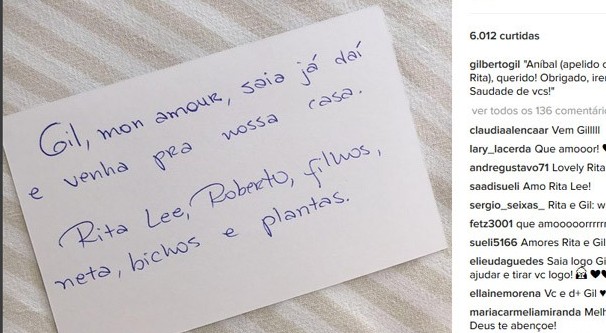 Gil, mon amour, saia já daí
e venha pra nossa casa.
Rita Lee, Roberto, filhos,
neta, bichos e plantas.
6.012 curtidas
gilbertogil "Aníbal (apelido
Rita), querido! Obrigado,
Saudade de vcs!"
ver todos os 136
claudiaalencaar Vem Gilllll
lary_lacerda Que amooor!
andregustavo71 Lovely Rita
saadisueli Amo Rita Lee!
sergio_seixas_ Rita e Gil:
fetz3001 que
sueli5166 Amores Rita e Gil
elieudaguedes Saia logo
ajudar e tirar vc logo! 🙈 ♥♥
ellainemorena Vc e d+ Gil ♥
mariacarmeliamiranda
Deus te abençoe!